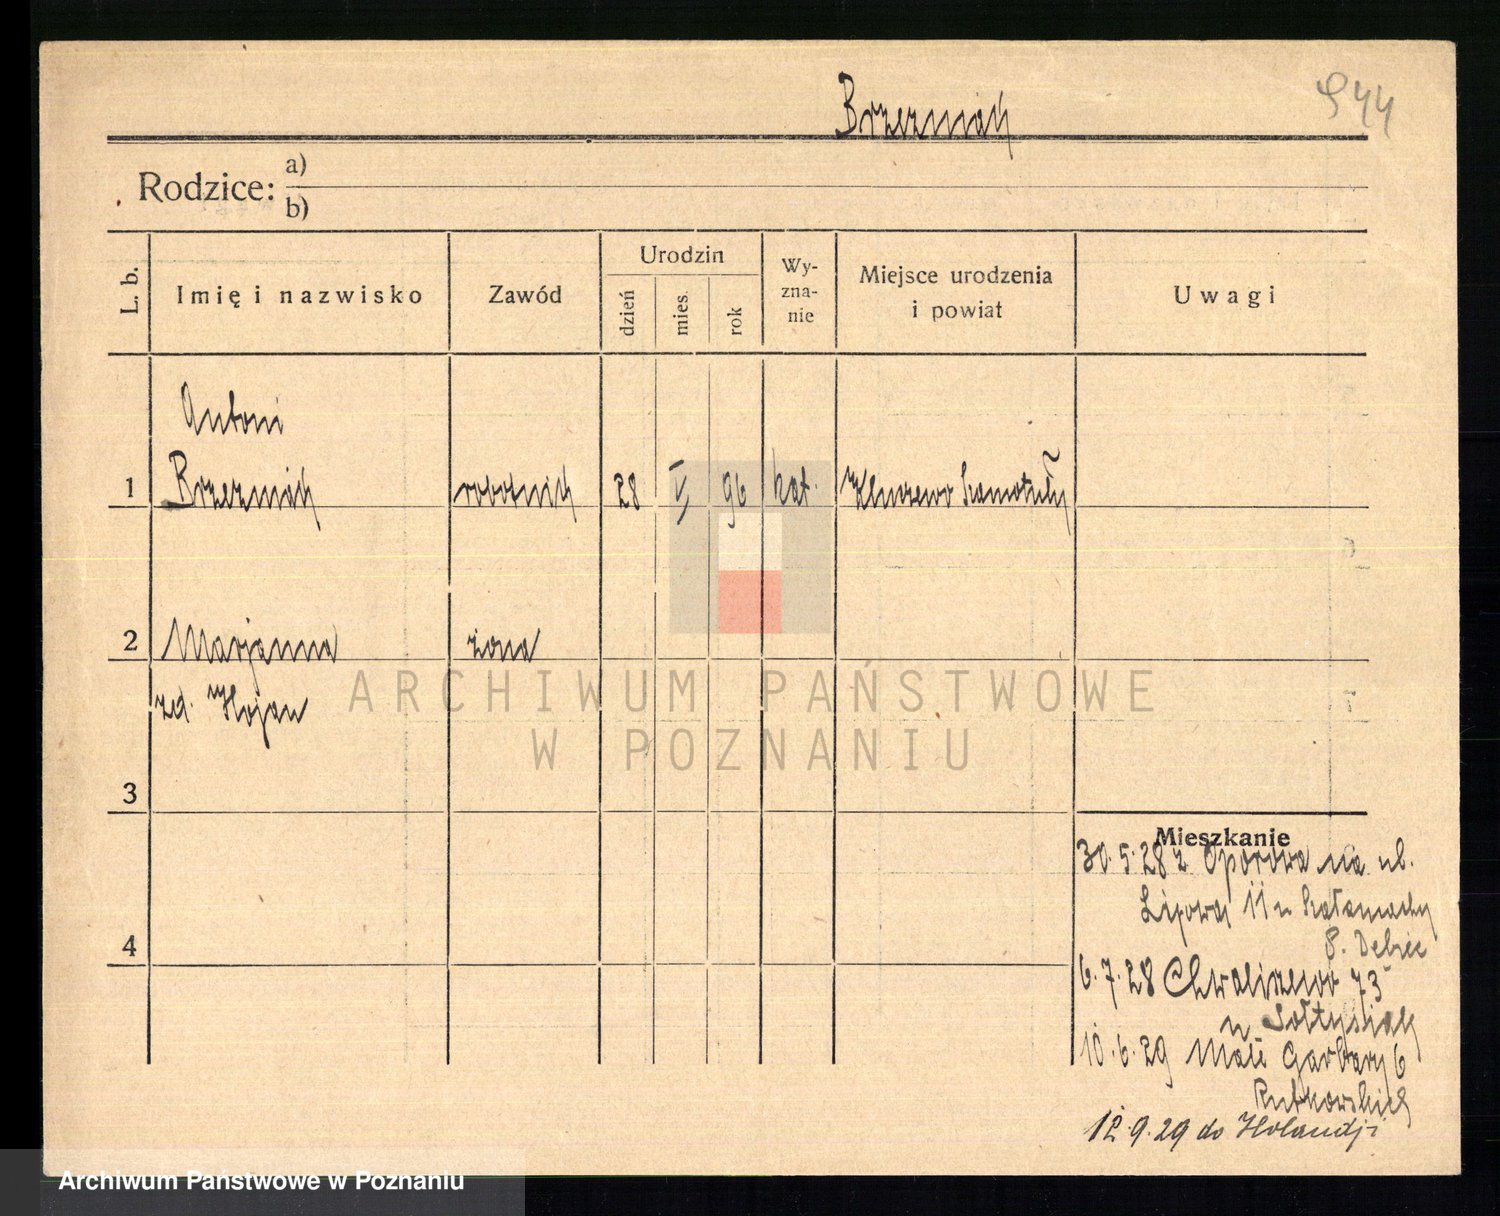 Brzezniak
944
Rodzice: a)
b)
L. b.
Imię i nazwisko
Zawód
Urodzin
dzień
mies.
rok
Wy-
zna-
nie
Miejsce urodzenia
i powiat
Uwagi
Antoni
1 Brzezniak robotnik 28 V 96 kat. Kluczewo Szamotuły
2 Marjanna żona
zd. Hojan
ARCHIWUM PAŃSTWOWE
W POZNANIU
3
4
Mieszkanie
30.5.28 z Oporowa na ul.
Lipowa 11 u
8. Debiec
6.7.28 Chwaliszewo 73
u Sołtysiak
10.6.29 Małe Garbary 6
Rutkowskich
12.9.29 do Holandji
Archiwum Państwowe w Poznaniu